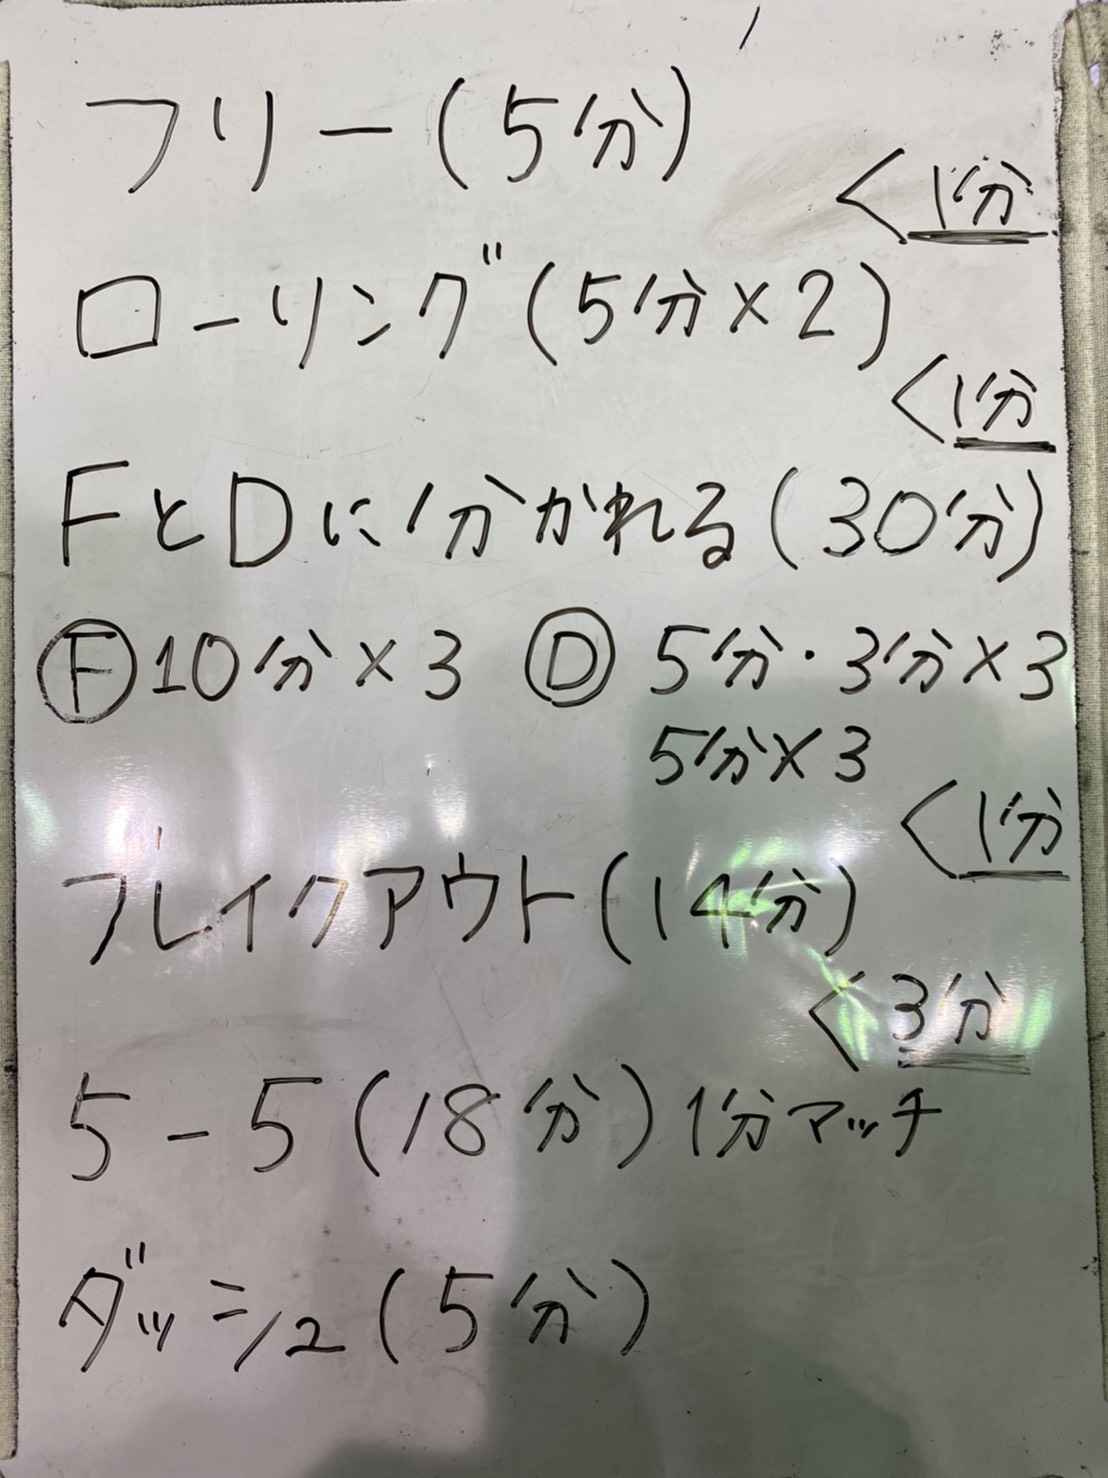 フリー(5分)
<1分
ローリング(5分×2)
<1分
FとDに分かれる(30分)
Ⓕ10分×3 Ⓓ5分・3分×3
5分×3
<1分
ブレイクアウト(14分)
<3分
5-5(18分)1分マッチ
ダッシュ(5分)